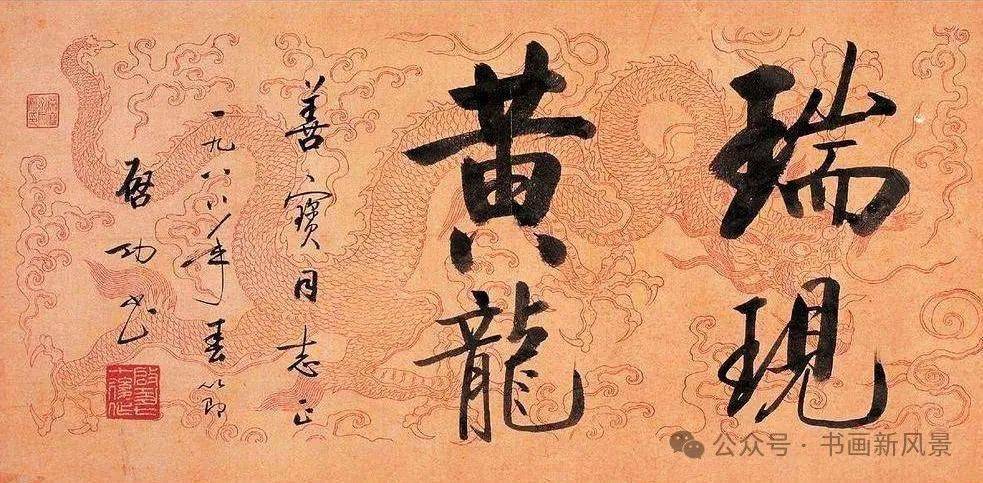 瑞現
黄龍
善寶同志正
一九八八年春節
啓功书
公众号 · 书画新风景